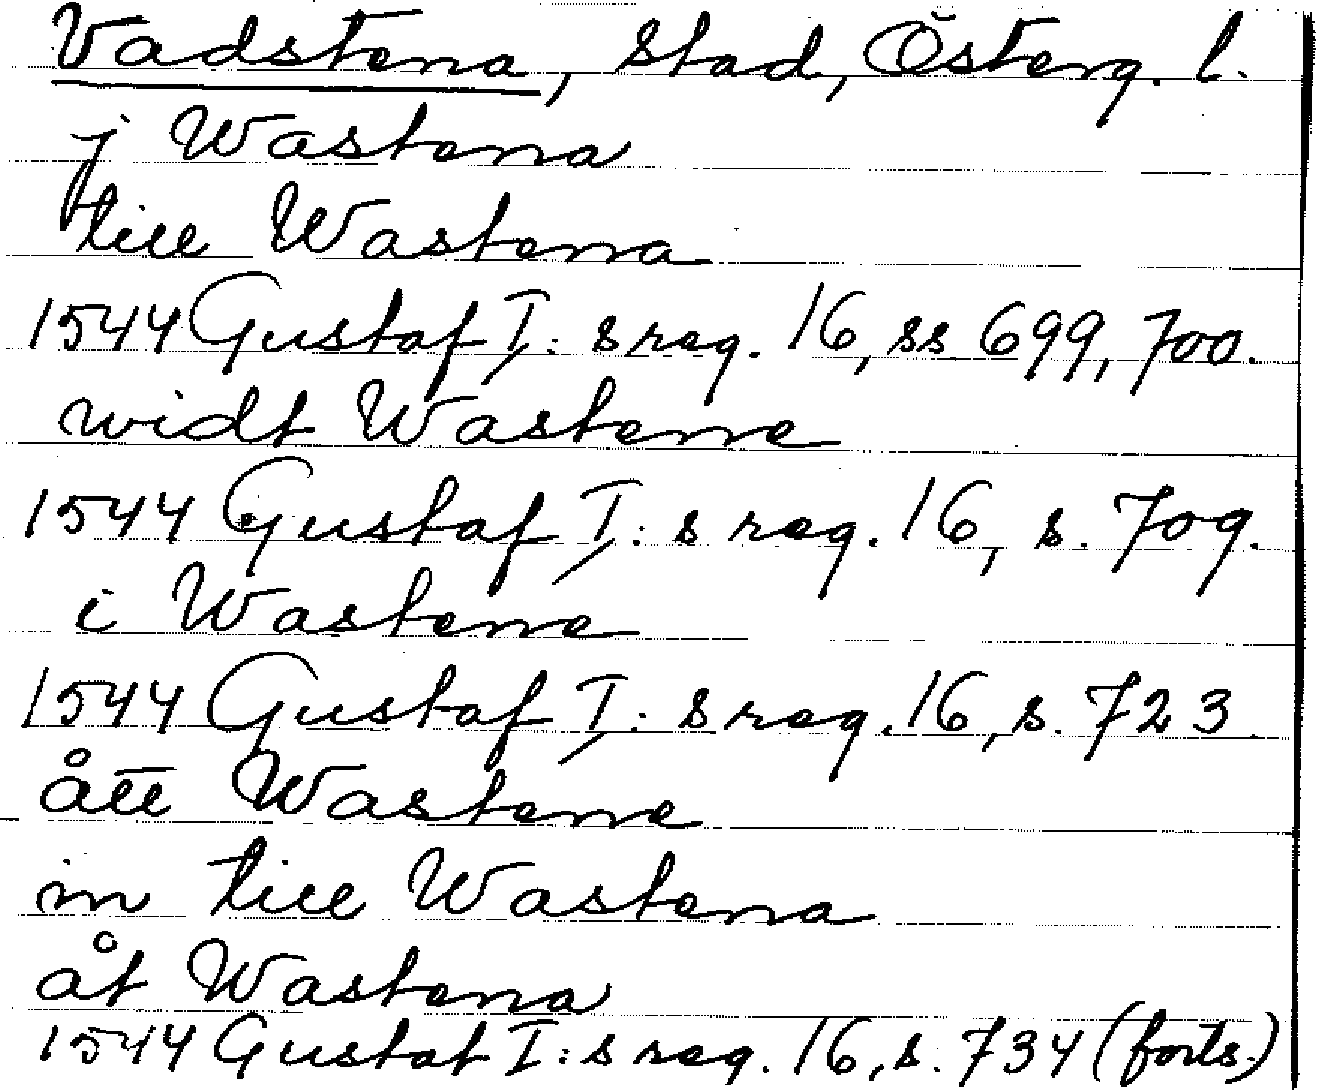 Vadstena, stad, Österg. l.
j Wastena
till Wastena
1544 Gustaf I: s reg. 16, ss 699, 700.
widt Wastene
1544 Gustaf I: s reg. 16, s. 709.
i Wastene
1544 Gustaf I: s reg. 16, s. 723
ått Wastene
in till Wastena
åt Wastena
1544 Gustaf I: s reg. 16, s. 734 (forts.)